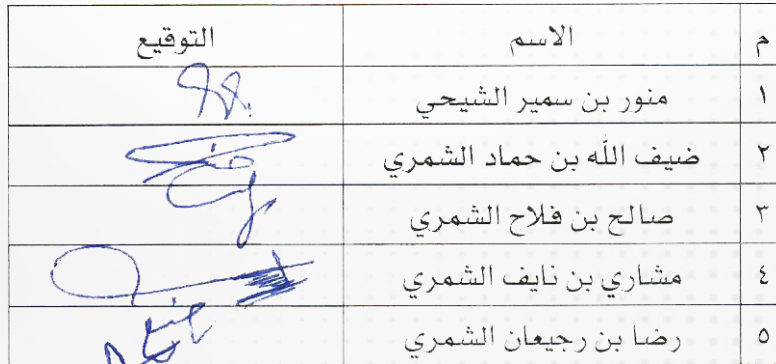 م الاسم التوقيع
١ منور بن سمير الشيحي
٢ ضيف الله بن حماد الشمري
٣ صالح بن فلاح الشمري
٤ مشاري بن نايف الشمري
٥ رضا بن رجيعان الشمري